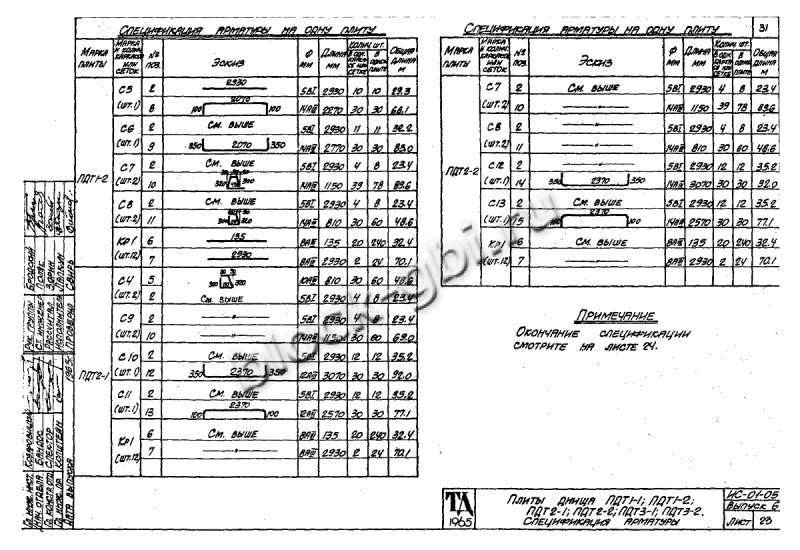 Спецификация арматуры на одну плиту
Марка плиты | Марка и колич. каркасов или сеток | № поз. | Эскиз | Ф мм | Длина мм | Колич. шт. в одн. каркасе или сетке | в одной плите | Общая длина м
ПДТ1-2
С5 (шт.1) | 2 | 2930 | 5ВI | 2930 | 10 | 10 | 29.3
8 | 100 2070 100 | 14АIII | 2270 | 30 | 30 | 68.1
С6 (шт.1) | 2 | См. выше | 5ВI | 2930 | 11 | 11 | 32.2
9 | 350 2070 350 | 14АIII | 2770 | 30 | 30 | 83.0
С7 (шт.2) | 2 | См. выше | 5ВI | 2930 | 4 | 8 | 23.4
10 | 14АIII | 1150 | 39 | 78 | 89.6
С8 (шт.2) | 2 | См. выше | 5ВI | 2930 | 4 | 8 | 23.4
11 | 14АIII | 810 | 30 | 60 | 48.6
Кр1 (шт.12) | 6 | 135 | 8АIII | 135 | 20 | 240 | 32.4
7 | 2930 | 8АIII | 2930 | 2 | 24 | 70.1
ПДТ2-1
С4 (шт.2) | 5 | 10АIII | 810 | 30 | 60 | 48.6
2 | См. выше | 5ВI | 2930 | 4 | 8 | 23.4
С9 (шт.2) | 2 | —"— | 5ВI | 2930 | 4 | 8 | 23.4
10 | —"— | 14АIII | 1150 | 30 | 60 | 69.0
С10 (шт.1) | 2 | См. выше | 5ВI | 2930 | 12 | 12 | 35.2
12 | 350 2370 350 | 12АIII | 3070 | 30 | 30 | 92.0
С11 (шт.1) | 2 | См. выше | 5ВI | 2930 | 12 | 12 | 35.2
13 | 100 2370 100 | 12АIII | 2570 | 30 | 30 | 77.1
Кр1 (шт.12) | 6 | См. выше | 8АIII | 135 | 20 | 240 | 32.4
7 | —"— | 8АIII | 2930 | 2 | 24 | 70.1
Спецификация арматуры на одну плиту
31
Марка плиты | Марка и колич. каркасов или сеток | № поз. | Эскиз | Ф мм | Длина мм | Колич. шт. в одн. каркасе или сетке | в одной плите | Общая длина м
ПДТ2-2
С7 (шт.2) | 2 | См. выше | 5ВI | 2930 | 4 | 8 | 23.4
10 | —"— | 14АIII | 1150 | 39 | 78 | 89.6
С8 (шт.2) | 2 | —"— | 5ВI | 2930 | 4 | 8 | 23.4
11 | —"— | 14АIII | 810 | 30 | 60 | 48.6
С12 (шт.1) | 2 | —"— | 5ВI | 2930 | 12 | 12 | 35.2
14 | 350 2370 350 | 14АIII | 3070 | 30 | 30 | 92.0
С13 (шт.1) | 2 | См. выше | 5ВI | 2930 | 12 | 12 | 35.2
15 | 100 2370 100 | 14АIII | 2570 | 30 | 30 | 77.1
Кр1 (шт.12) | 6 | См. выше | 8АIII | 135 | 20 | 240 | 32.4
7 | —"— | 8АIII | 2930 | 2 | 24 | 70.1
Примечание
Окончание спецификации
смотрите на листе 24.
block-gbi.ru
ТА
1965
Плиты днища ПДТ1-1; ПДТ1-2;
ПДТ2-1; ПДТ2-2; ПДТ3-1; ПДТ3-2.
Спецификация арматуры
ИС-01-05
Выпуск 6
Лист 23
Рук. группы
Ст. инженер
Рассчитал
Исполнитель
Проверил
Нач. отдела Бандос
Гл. констр. отд. Спектор
Дата выпуска 1965г